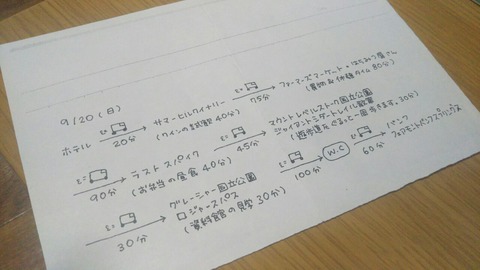 9/20(日)
ホテル
20分
サマーヒルワイナリー
(ワインの試飲 40分)
75分
ファーマーズマーケット・はちみつ屋さん
(買物& タイム 分)
90分
ラスト スパイク
(お弁当の昼食 40分)
45分
マウントレベルストーク国立公園
ジャイアントシダートレイル散策
(遊歩道をぐるっと一周歩きます。30分)
30分
グレーシャー国立公園
ロジャースパス
(資料館の見学 30分)
100分
W.C
60分
バンフ
フェアモントバンフスプリングス